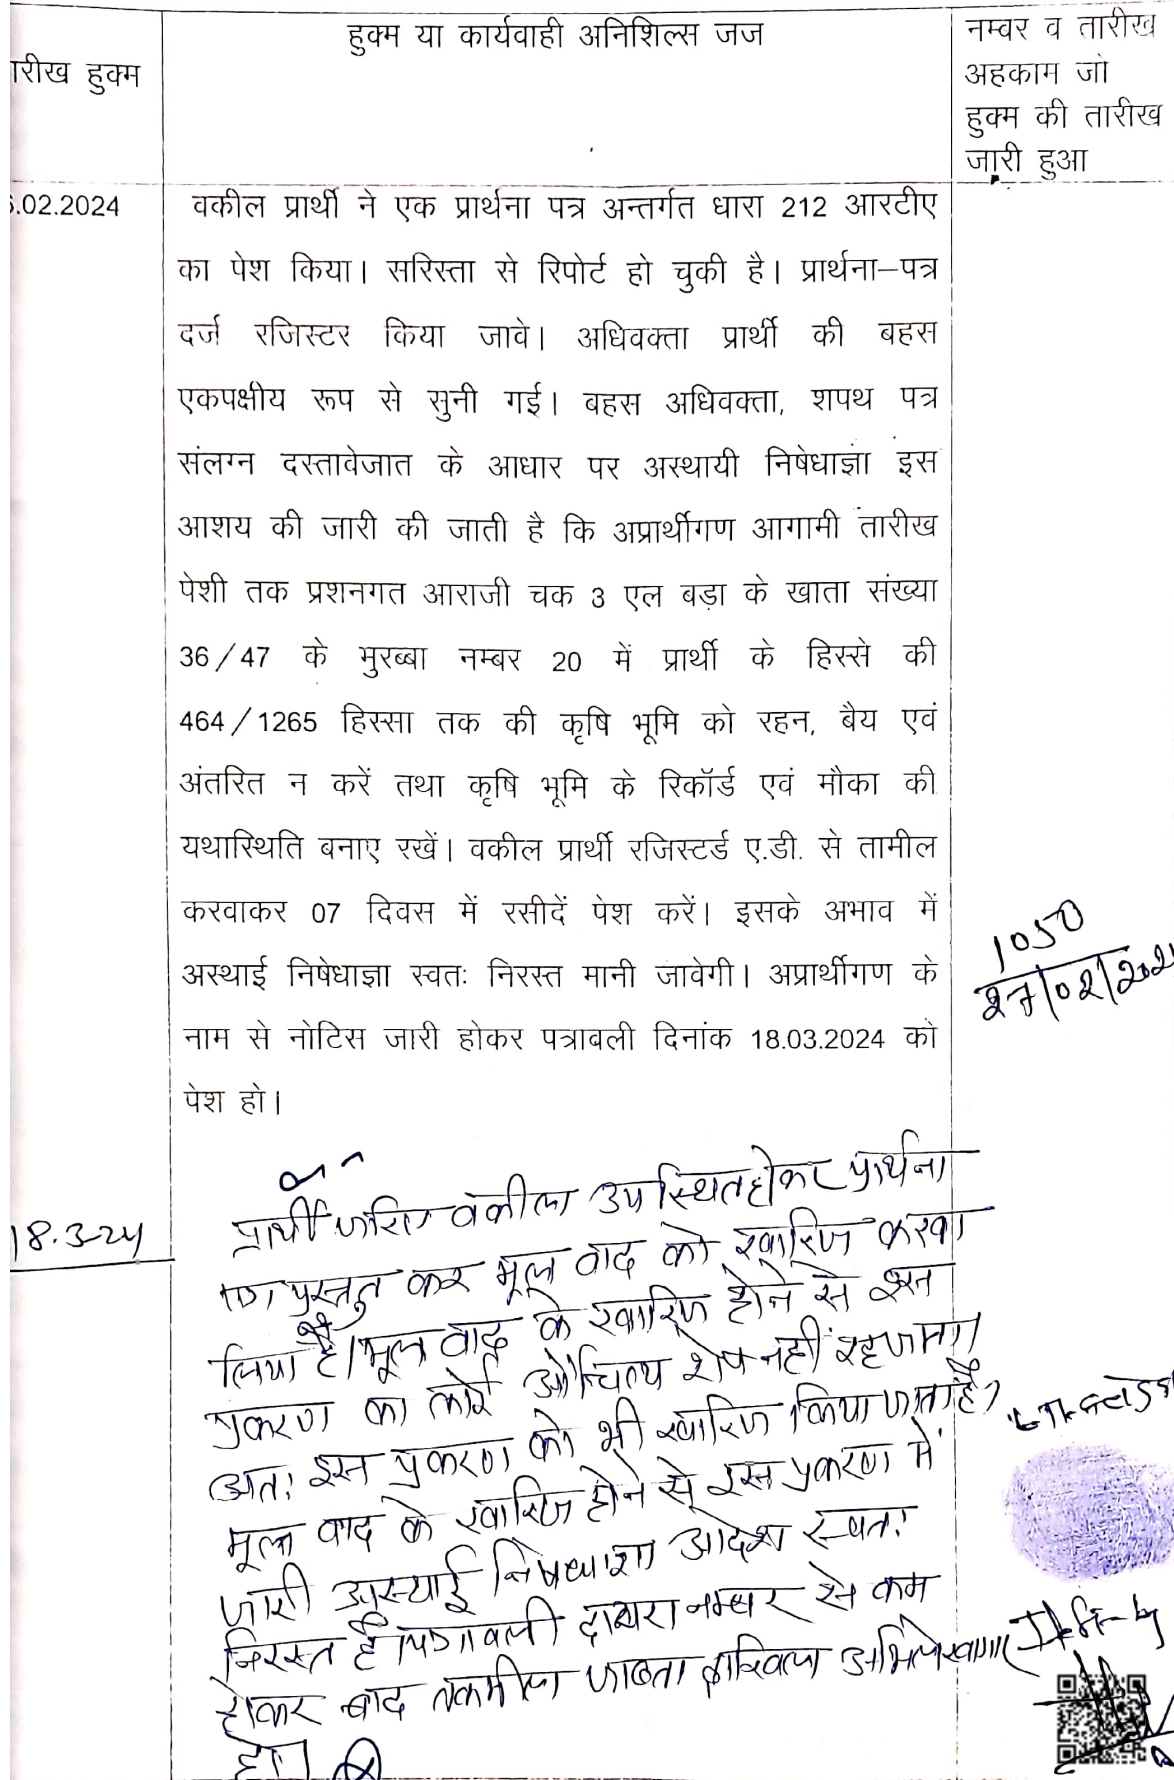 रीख हुक्म
हुक्म या कार्यवाही अनिशिल्स जज
नम्बर व तारीख
अहकाम जो
हुक्म की तारीख
जारी हुआ
.02.2024
वकील प्रार्थी ने एक प्रार्थना पत्र अन्तर्गत धारा 212 आरटीए
का पेश किया। सरिस्ता से रिपोर्ट हो चुकी है। प्रार्थना–पत्र
दर्ज रजिस्टर किया जावे। अधिवक्ता प्रार्थी की बहस
एकपक्षीय रूप से सुनी गई। बहस अधिवक्ता, शपथ पत्र
संलग्न दस्तावेजात के आधार पर अस्थायी निषेधाज्ञा इस
आशय की जारी की जाती है कि अप्रार्थीगण आगामी तारीख
पेशी तक प्रशनगत आराजी चक 3 एल बड़ा के खाता संख्या
36/47 के मुरब्बा नम्बर 20 में प्रार्थी के हिस्से की
464/1265 हिस्सा तक की कृषि भूमि को रहन, बैय एवं
अंतरित न करें तथा कृषि भूमि के रिकॉर्ड एवं मौका की
यथास्थिति बनाए रखें। वकील प्रार्थी रजिस्टर्ड ए.डी. से तामील
करवाकर 07 दिवस में रसीदें पेश करें। इसके अभाव में
अस्थाई निषेधाज्ञा स्वतः निरस्त मानी जावेगी। अप्रार्थीगण के
नाम से नोटिस जारी होकर पत्रावली दिनांक 18.03.2024 को
पेश हो।
1050
27/02/202
18.3-24
प्रार्थी जरिए वकील उपस्थित होकर प्रार्थना
पत्र प्रस्तुत कर मूल वाद को खारिज करवा
लिया है। मूल वाद के खारिज होने से इस
प्रकरण का कोई औचित्य शेष नहीं रह जाता।
अतः इस प्रकरण को भी खारिज किया जाता है।
मूल वाद के खारिज होने से इस प्रकरण में
जारी अस्थाई निषेधाज्ञा आदेश स्वतः
निरस्त है। पत्रावली दायरा नम्बर से कम
होकर बाद तकमील जाब्ता दाखिल अभिलेखागार
हो।